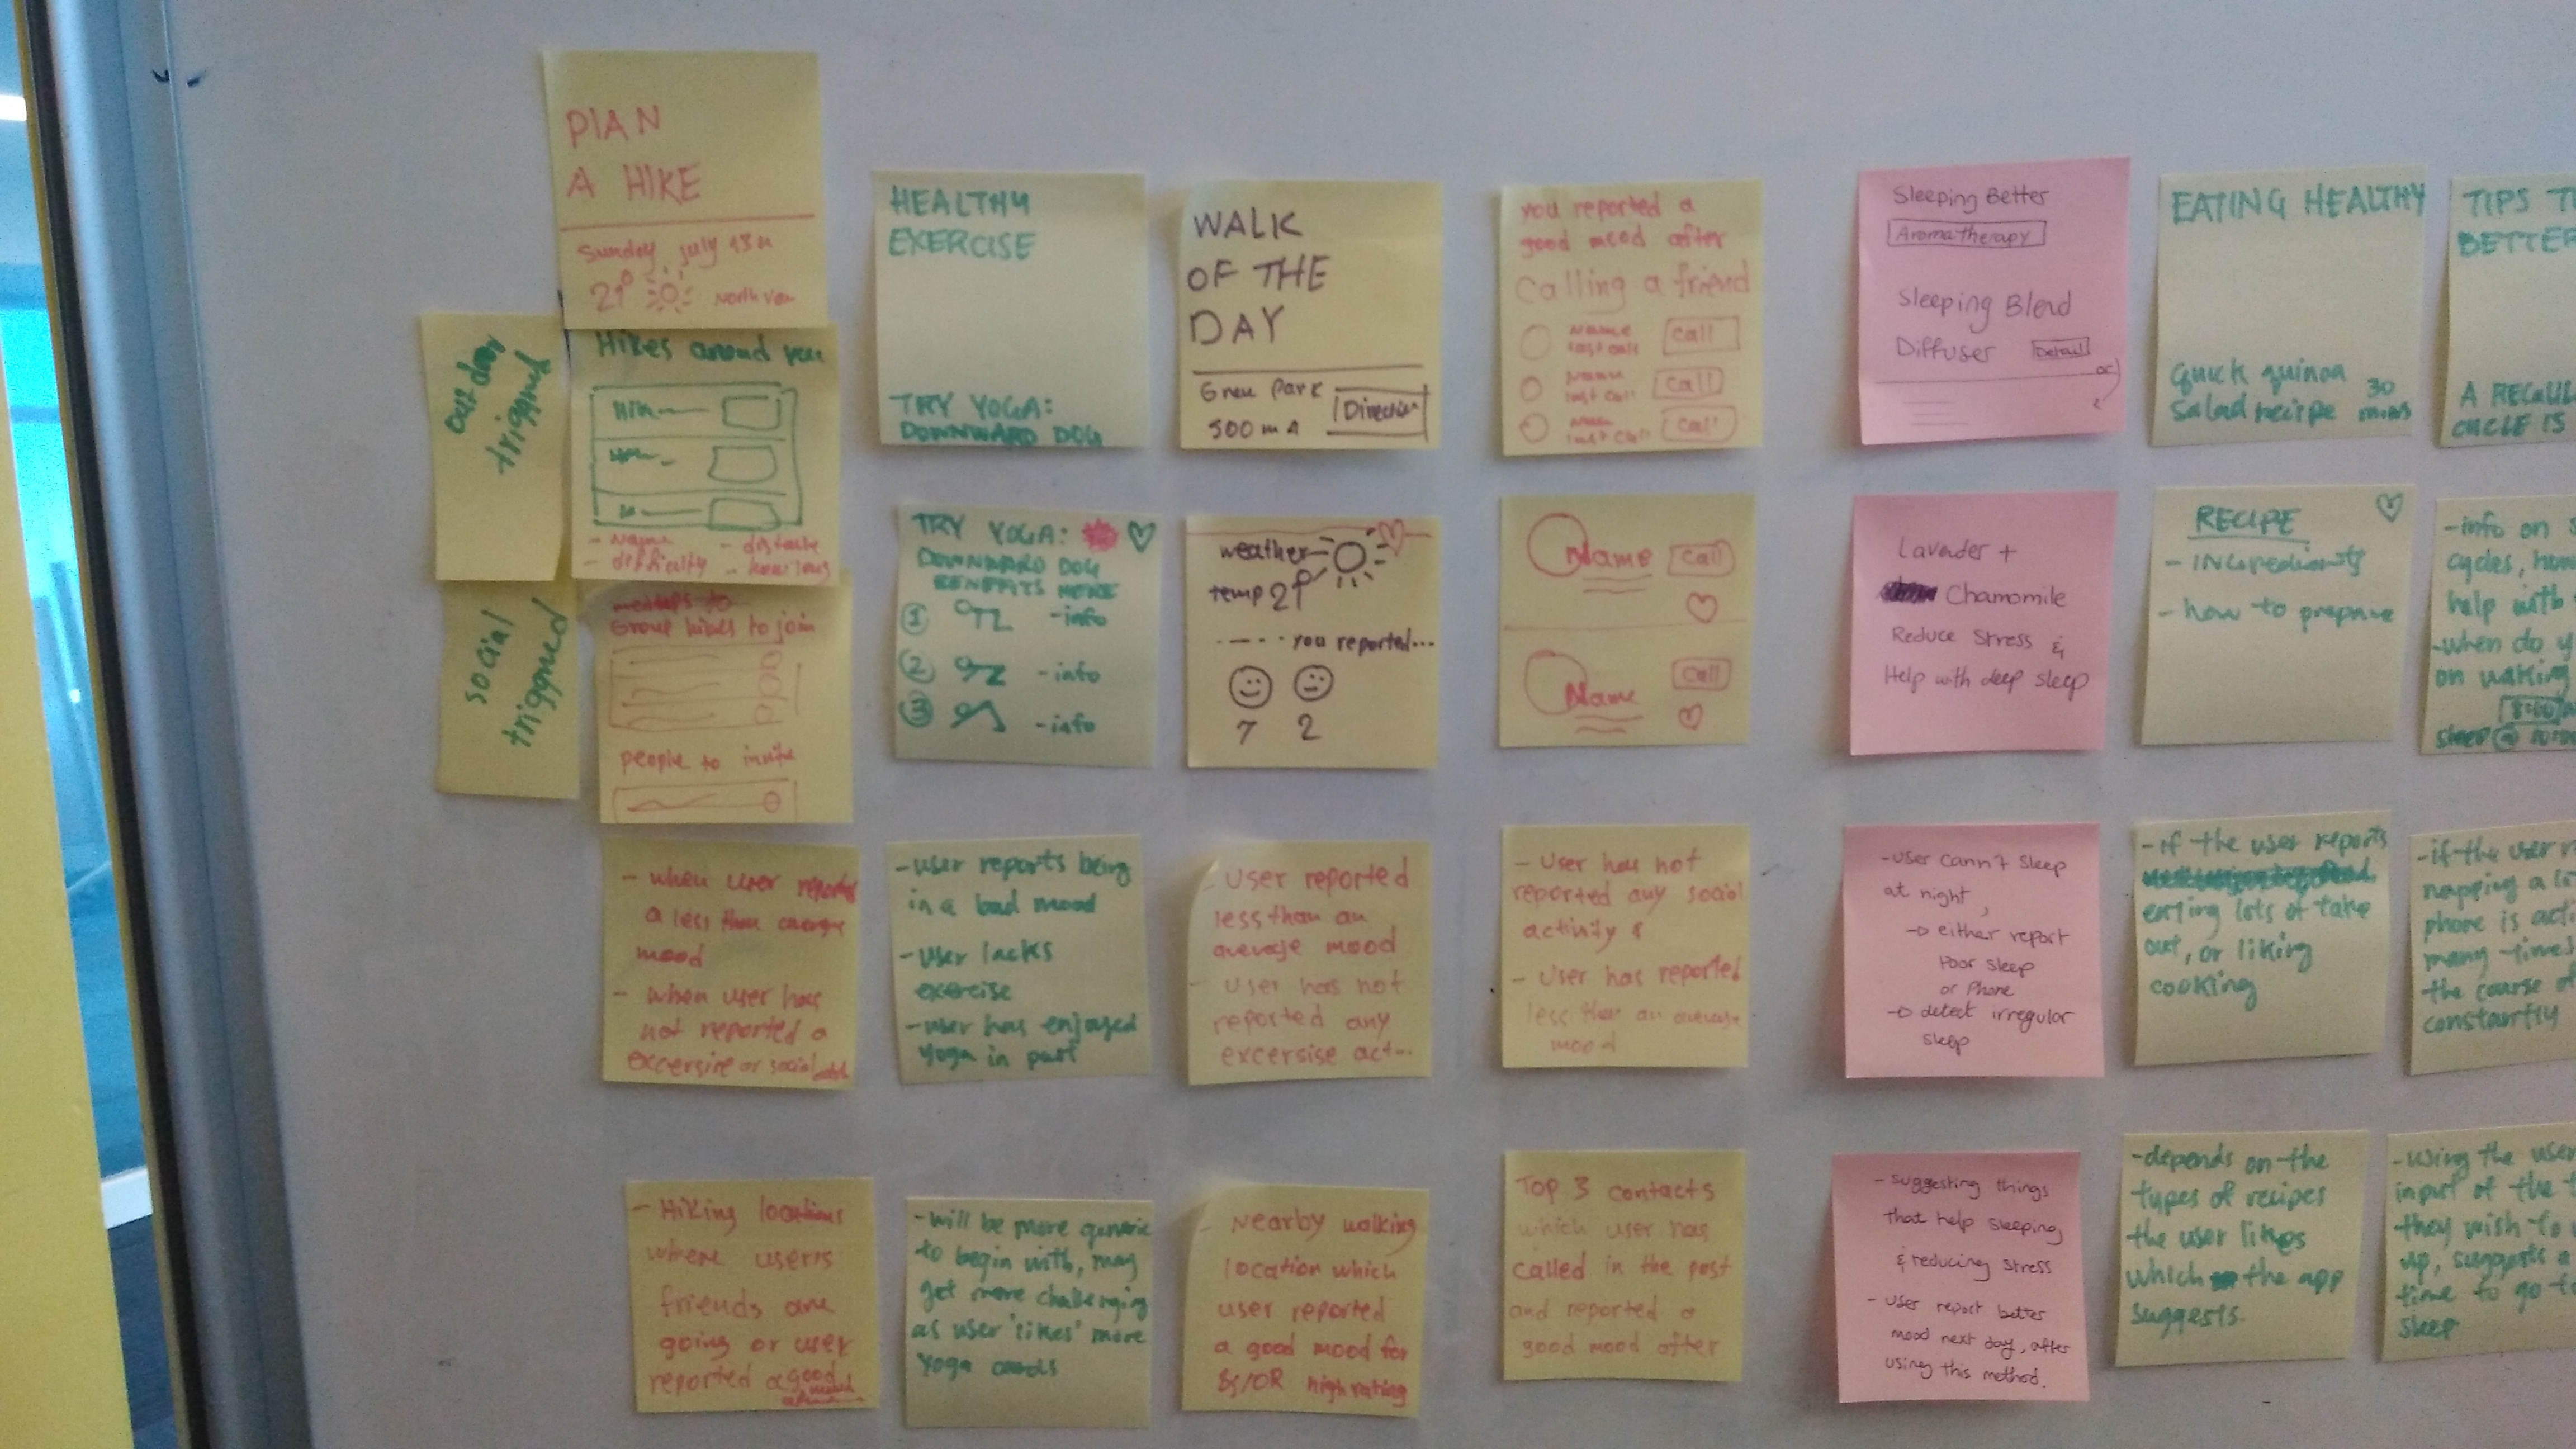 PLAN
A HIKE
Sunday July 13
21°
Hikes around you
- Name
- difficulty
- distance
- how long
triggered
social
triggered
Group hikes to join
people to invite
- when user reports
a less than average
mood
- when user has
not reported a
excersire or social
- Hiking locations
where users
friends are
going or user
reported a good
HEALTHY
EXERCISE
TRY YOGA:
DOWNWARD DOG
TRY YOGA:
DOWNWARD DOG
BENEFITS
1 -info
2 -info
3 -info
- user reports being
in a bad mood
- user lacks
exercise
- user has enjoyed
yoga in past
- will be more generic
to begin with, may
get more challenging
as user 'likes' more
yoga cards
WALK
OF THE
DAY
Park
500 m
Direction
weather
temp 21°
you reported...
7 2
- User reported
less than an
average mood
- User has not
reported any
excersise act...
- Nearby walking
location which
user reported
a good mood for
&/OR high rating
you reported a
good mood after
calling a friend
Name
last call
call
Name
last call
call
Name
last call
call
Name
call
Name
call
- User has not
reported any social
activity &
- User has reported
less than an average
mood
Top 3 contacts
which user has
called in the past
and reported a
good mood after
Sleeping Better
Aromatherapy
Sleeping Blend
Diffuser
Detail
or
Lavender +
Chamomile
Reduce Stress &
Help with deep sleep
- user cann't sleep
at night,
→ either report
poor sleep
or Phone
→ detect irregular
sleep
- suggesting things
that help sleeping
& reducing stress
- user report better
mood next day, after
using this method.
EATING HEALTHY
Quick quinoa
salad recipe 30 mins
RECIPE
- INGredients
- how to prepare
- if the user reports
eating lots of take
out, or liking
cooking
- depends on the
types of recipes
the user likes
which the app
suggests.
TIPS
BETTER
A
CYCLE IS
- info on
cycles, how
help with
- when do y
on waking
8:00
sleep @
- if the user
napping a lo
phone is acti
many times
the course of
constantly
- using the user
input of the t
they wish to
up, suggests a
time to go to
sleep